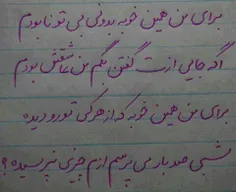 برای من همین خوبه بدونی بی تو نابودم
اگه جایی ازت گفتن بگم من عاشقش بودم
برای من همین خوبه که از هر کی تو رو دیده
شبی صد بار می پرسم ازم چیزی نپرسیده؟